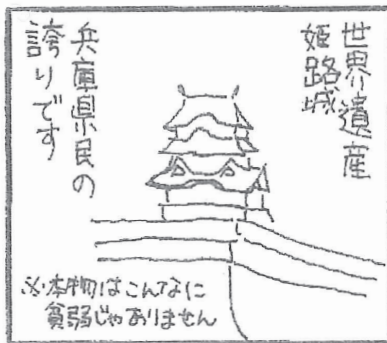 世界遺産
姫路城
兵庫県民の
誇りです
※本物はこんなに
貧弱じゃありません